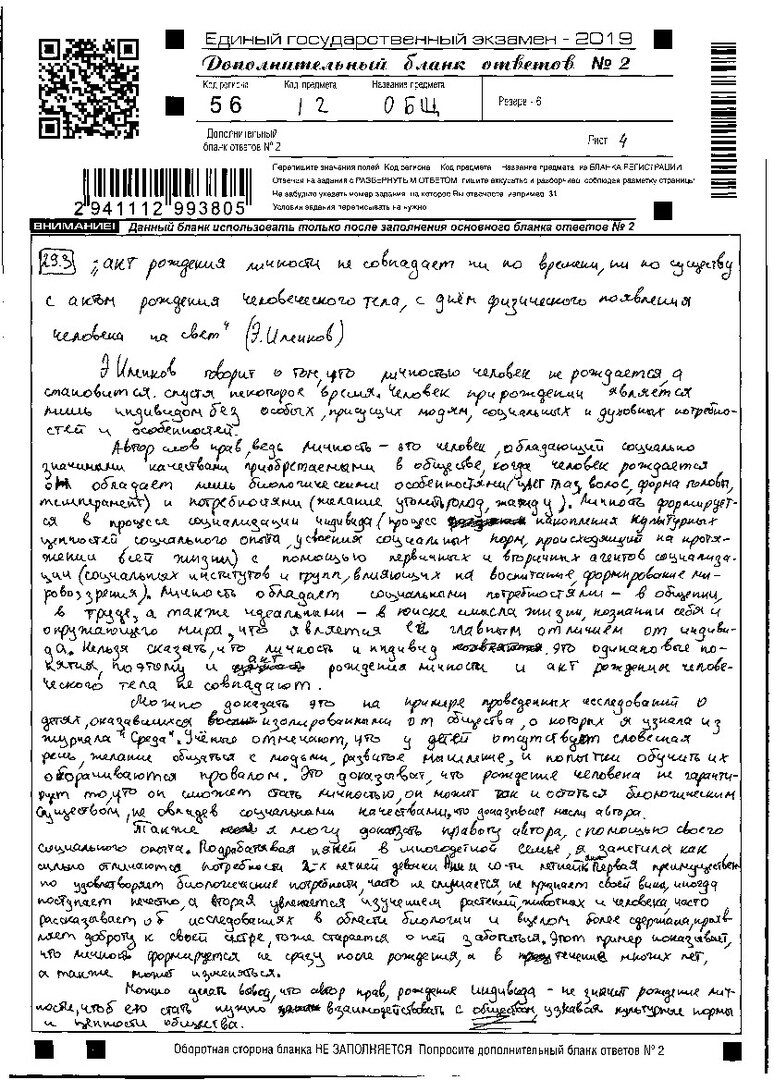 Единый государственный экзамен - 2019
Дополнительный бланк ответов № 2
Код региона Код предмета Название предмета
56 12 ОБЩ Резерв - 6
Дополнительный
бланк ответов № 2
Лист 4
Перепишите значения полей Код региона Код предмета Название предмета из БЛАНКА РЕГИСТРАЦИИ
Отвечая на задания с РАЗВЕРНУТЫМ ОТВЕТОМ пишите аккуратно и разборчиво соблюдая разметку страницы
Не забудьте указать номер задания на которое Вы отвечаете например 31
Условия задания переписывать не нужно
2941112 993805
ВНИМАНИЕ! Данный бланк использовать только после заполнения основного бланка ответов № 2
29.3 „акт рождения личности не совпадает ни по времени, ни по существу
с актом рождения человеческого тела, с днём физического появления
человека на свет" (Э.Иленков)
Э Иленков говорит о том, что личностью человек не рождается, а
становится спустя некоторое время. Человек при рождении является
лишь индивидом без особых, присущих людям, социальных и духовных потребно-
стей и особенностей.
Автор слов прав, ведь личность – это человек, обладающий социально
значимыми качествами приобретаемыми в обществе, когда человек рождается
он обладает лишь биологическими особенностями (цвет глаз, волос, форма головы,
темперамент) и потребностями (желание утолить голод, жажду). Личность формирует-
ся в процессе социализации индивида (процесс накопления культурных
ценностей социального опыта, усвоения социальных норм, происходящий на протя-
жении всей жизни) с помощью первичных и вторичных агентов социализа-
ции (социальных институтов и групп, влияющих на воспитание, формирование ми-
ровоззрения). Личность обладает социальными потребностями – в общении,
в труде, а также идеальными – в поиске смысла жизни, познании себя и
окружающего мира, что является её главным отличием от индиви-
да. Нельзя сказать, что личность и индивид это одинаковые по-
нятия, поэтому и акт рождения личности и акт рождения челове-
ческого тела не совпадают.
Можно доказать это на примере проведенных исследований о
детях, оказавшихся изолированными от общества, о которых я узнала из
журнала "Среда". Учёные отмечают, что у детей отсутствует словесная
речь, желание общаться с людьми, развитое мышление, и попытки обучить их
оборачиваются провалом. Это доказывает, что рождение человека не гаранти-
рует то, что он сможет стать личностью, он может так и остаться биологическим
существом, не овладев социальными качествами, что доказывает мысли автора.
Также я могу доказать правоту автора, с помощью своего
социального опыта. Подрабатывая няней в многодетной семье, я заметила как
сильно отличаются потребности 2-х летней девочки и 10-ти летней Первая преимуществен
но удовлетворяет биологические потребности, часто не слушается, не признает своей вины, иногда
поступает нечестно, а вторая увлекается изучением растений, животных и человека, часто
рассказывает об исследованиях в области биологии и вцелом более сдержана, прояв-
ляет доброту к своей сестре, тоже старается о ней заботиться. Этот пример показывает,
что личность формируется не сразу после рождения, а в течение многих лет,
а также может изменяться.
Можно делать вывод, что автор прав, рождение индивида - не значит рождение лич-
ности, чтоб ею стать нужно взаимодействовать с обществом, узнавая культурные нормы
и ценности общества.
Оборотная сторона бланка НЕ ЗАПОЛНЯЕТСЯ Попросите дополнительный бланк ответов № 2